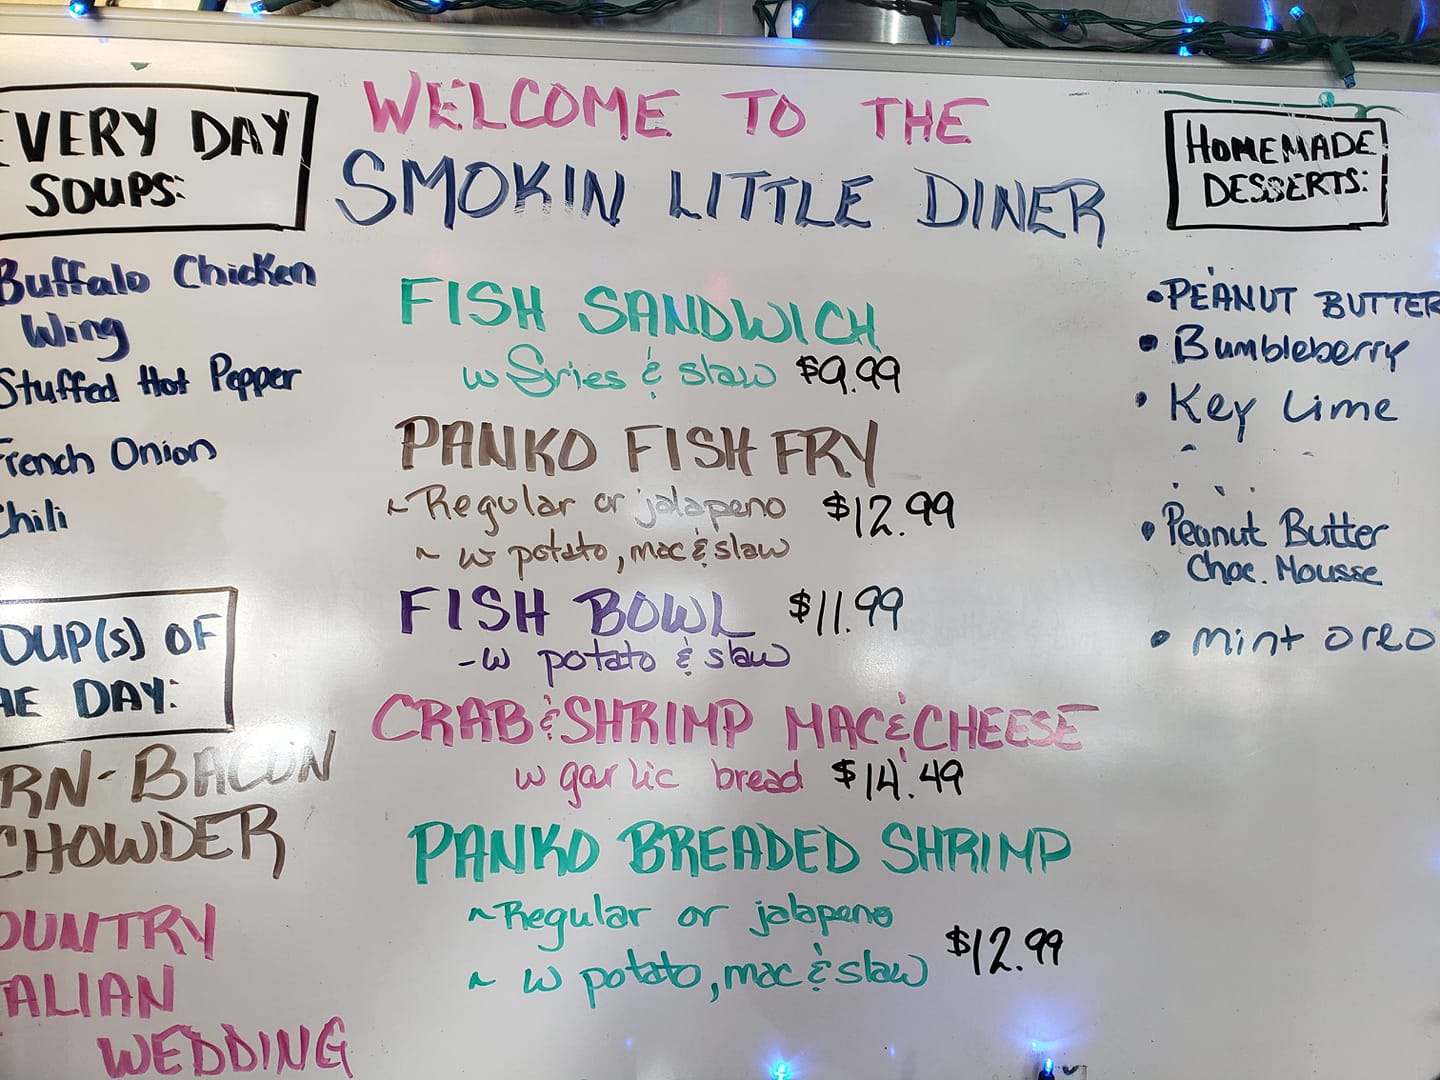 EVERY DAY
SOUPS:
Buffalo Chicken
Wing
Stuffed Hot Pepper
French Onion
Chili
OUP(S) OF
HE DAY:
RN-BACON
CHOWDER
OUNTRY
TALIAN
WEDDING
WELCOME TO THE
SMOKIN LITTLE DINER
FISH SANDWICH
w fries & slaw $9.99
PANKO FISH FRY
~Regular or jalapeno $12.99
~ w potato, mac & slaw
FISH BOWL $11.99
-w potato & slaw
CRAB & SHRIMP MAC & CHEESE
w garlic bread $14.49
PANKO BREADED SHRIMP
~Regular or jalapeno
~ w potato, mac & slaw $12.99
HOMEMADE
DESSERTS:
•PEANUT BUTTER
• Bumbleberry
• Key Lime
• Peanut Butter
Choc. Mousse
• Mint Oreo